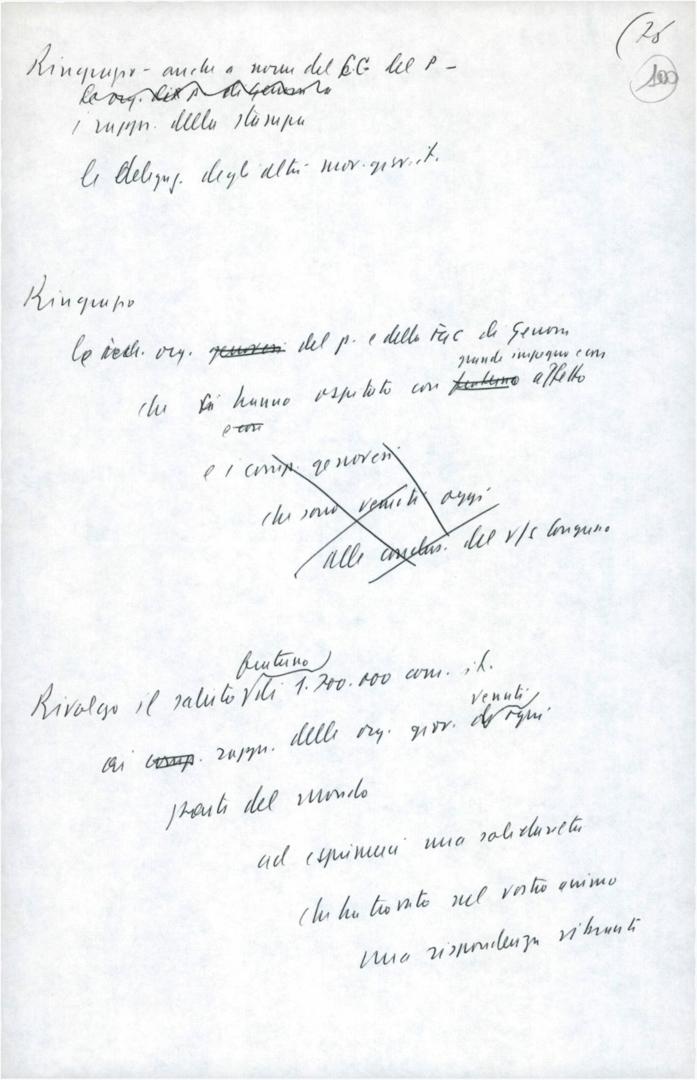 (25
100
Ringrazio - anche a nome del CC del P -
le org. del p. di Genova
i rapp. della stampa
le delegaz. degli altri mov. giov. it.
Ringrazio
le org. genovesi del p. e della FGC di Genova
grande impegno e con
che ci hanno ospitato con fraterno affetto
e con
e i comp. genovesi
che sono venuti oggi
alle conclus. del v/s Congresso
fraterno
Rivolgo il saluto di 1.700.000 com. it.
venuti
ai comp. rappr. delle org. giov. da ogni
parte del mondo
ad esprimerci una solidarietà
che ha trovato nel vostro animo
una rispondenza vibrante